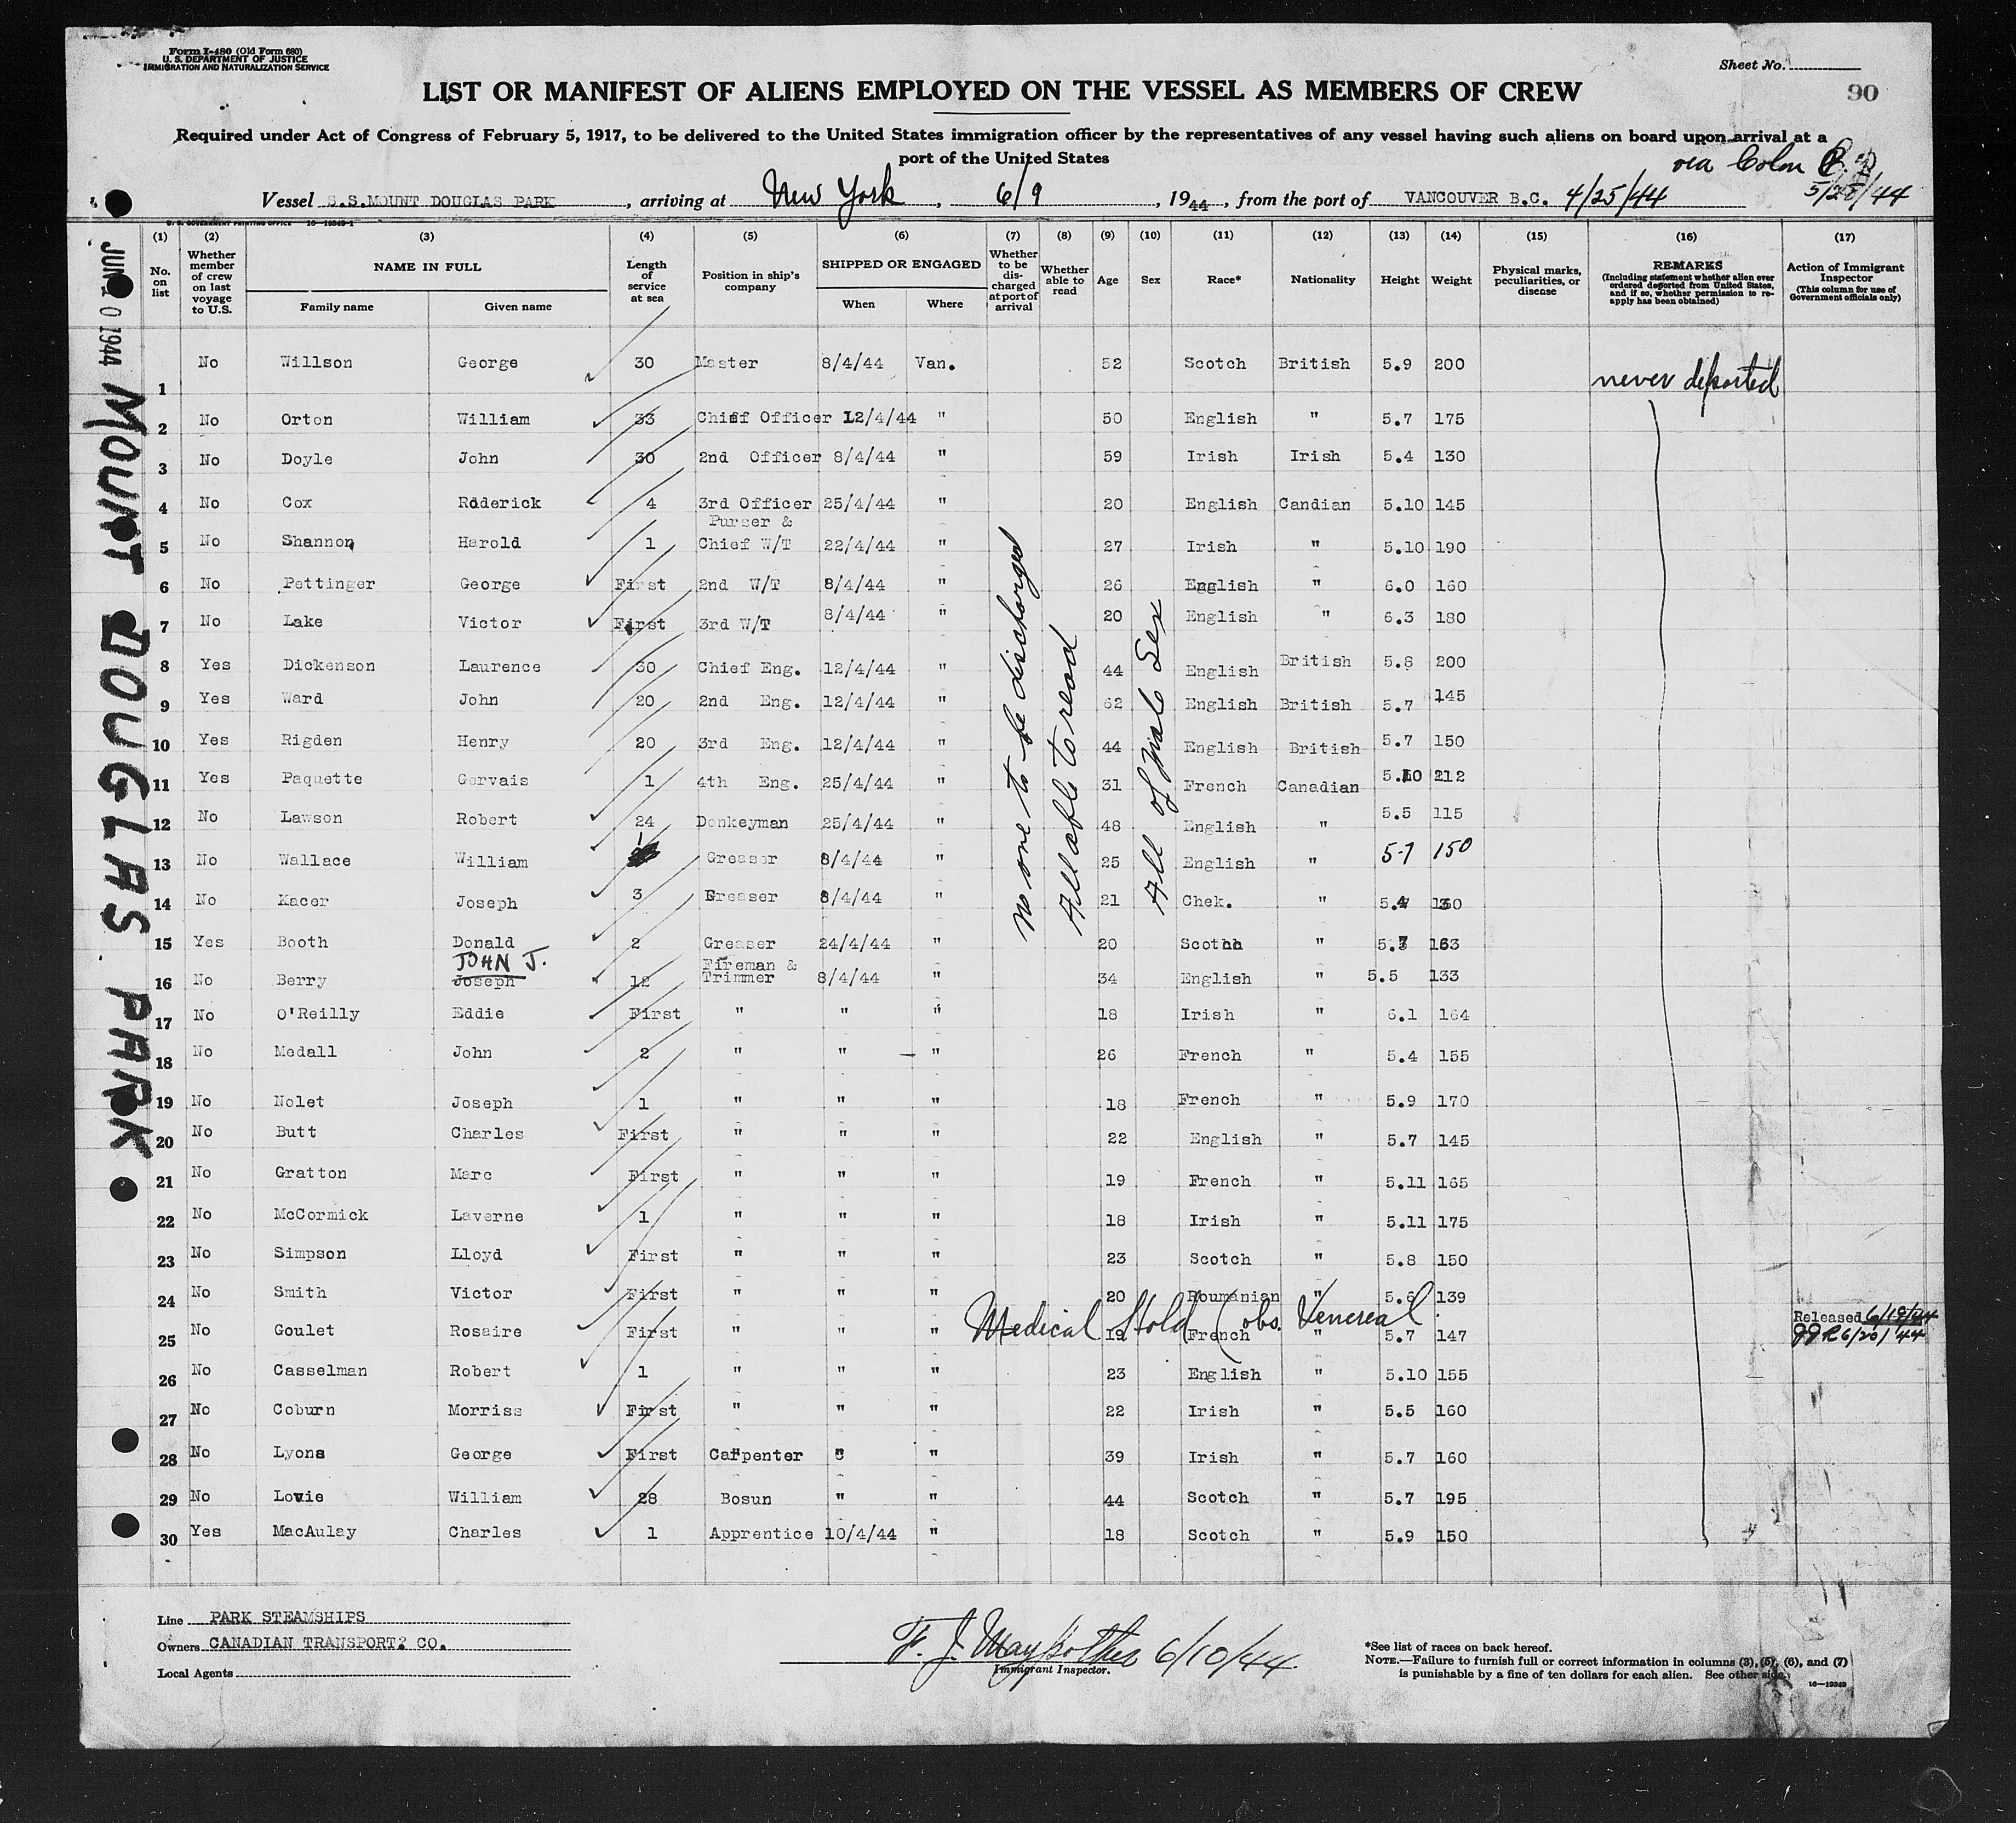 Form I-480 (Old Form 680)
U. S. DEPARTMENT OF JUSTICE
IMMIGRATION AND NATURALIZATION SERVICE
Sheet No.
LIST OR MANIFEST OF ALIENS EMPLOYED ON THE VESSEL AS MEMBERS OF CREW
90
Required under Act of Congress of February 5, 1917, to be delivered to the United States immigration officer by the representatives of any vessel having such aliens on board upon arrival at a
port of the United States
via Colon
Vessel S.S.MOUNT DOUGLAS PARK, arriving at New York, 6/9, 1944, from the port of VANCOUVER B.C. 4/25/44 5/25/44
U. S. GOVERNMENT PRINTING OFFICE 16-19349-1
(1) (2) (3) (4) (5) (6) (7) (8) (9) (10) (11) (12) (13) (14) (15) (16) (17)
No. on list
Whether member of crew on last voyage to U.S.
NAME IN FULL
Family name Given name
Length of service at sea
Position in ship's company
SHIPPED OR ENGAGED
When Where
Whether to be discharged at port of arrival
Whether able to read
Age Sex Race* Nationality Height Weight
Physical marks, peculiarities, or disease
REMARKS
(Including statement whether alien ever ordered deported from United States, and if so, whether permission to reapply has been obtained)
Action of Immigrant Inspector
(This column for use of Government officials only)
JUN 10 1944 MOUNT DOUGLAS PARK
1 No Willson George 30 Master 8/4/44 Van. 52 Scotch British 5.9 200 never deported
2 No Orton William 33 Chief Officer 12/4/44 " 50 English " 5.7 175
3 No Doyle John 30 2nd Officer 8/4/44 " 59 Irish Irish 5.4 130
4 No Cox Roderick 4 3rd Officer 25/4/44 " 20 English Candian 5.10 145
5 No Shannon Harold 1 Purser & Chief W/T 22/4/44 " 27 Irish " 5.10 190
6 No Pettinger George First 2nd W/T 8/4/44 " 26 English " 6.0 160
7 No Lake Victor First 3rd W/T 8/4/44 " 20 English " 6.3 180
8 Yes Dickenson Laurence 30 Chief Eng. 12/4/44 " 44 English British 5.8 200
9 Yes Ward John 20 2nd Eng. 12/4/44 " 62 English British 5.7 145
10 Yes Rigden Henry 20 3rd Eng. 12/4/44 " 44 English British 5.7 150
11 Yes Paquette Gervais 1 4th Eng. 25/4/44 " 31 French Canadian 5.10 212
12 No Lawson Robert 24 Donkeyman 25/4/44 " 48 English " 5.5 115
13 No Wallace William 1 Greaser 8/4/44 " 25 English " 5-7 150
14 No Kacer Joseph 3 Greaser 8/4/44 " 21 Chek. " 5.4 130
15 Yes Booth Donald 2 Greaser 24/4/44 " 20 Scotch " 5.7 163
JOHN J.
16 No Berry Joseph 12 Fireman & Trimmer 8/4/44 " 34 English " 5.5 133
17 No O'Reilly Eddie First " " " 18 Irish " 6.1 164
18 No Medall John 2 " " " 26 French " 5.4 155
19 No Nolet Joseph 1 " " " 18 French " 5.9 170
20 No Butt Charles First " " " 22 English " 5.7 145
21 No Gratton Marc First " " " 19 French " 5.11 165
22 No McCormick Laverne 1 " " " 18 Irish " 5.11 175
23 No Simpson Lloyd First " " " 23 Scotch " 5.8 150
24 No Smith Victor First " " " 20 Roumanian " 5.6 139
25 No Goulet Rosaire First " " " 19 French " 5.7 147
Medical Hold (obs. Venereal
Released 6/19/44
6/20/44
26 No Casselman Robert 1 " " " 23 English " 5.10 155
27 No Coburn Morriss First " " " 22 Irish " 5.5 160
28 No Lyons George First Carpenter " " 39 Irish " 5.7 160
29 No Lovie William 28 Bosun " " 44 Scotch " 5.7 195
30 Yes MacAulay Charles 1 Apprentice 10/4/44 " 18 Scotch " 5.9 150
No one to be discharged
All able to read
All of Male Sex
Line PARK STEAMSHIPS
Owners CANADIAN TRANSPORT. CO.
Local Agents
F. J. 6/10/44
Immigrant Inspector.
*See list of races on back hereof.
NOTE.—Failure to furnish full or correct information in columns (3), (5), (6), and (7)
is punishable by a fine of ten dollars for each alien. See other side.
16-19349